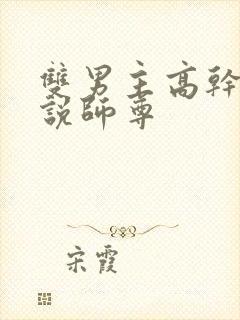 雙男主高幹
說師尊
宋霞